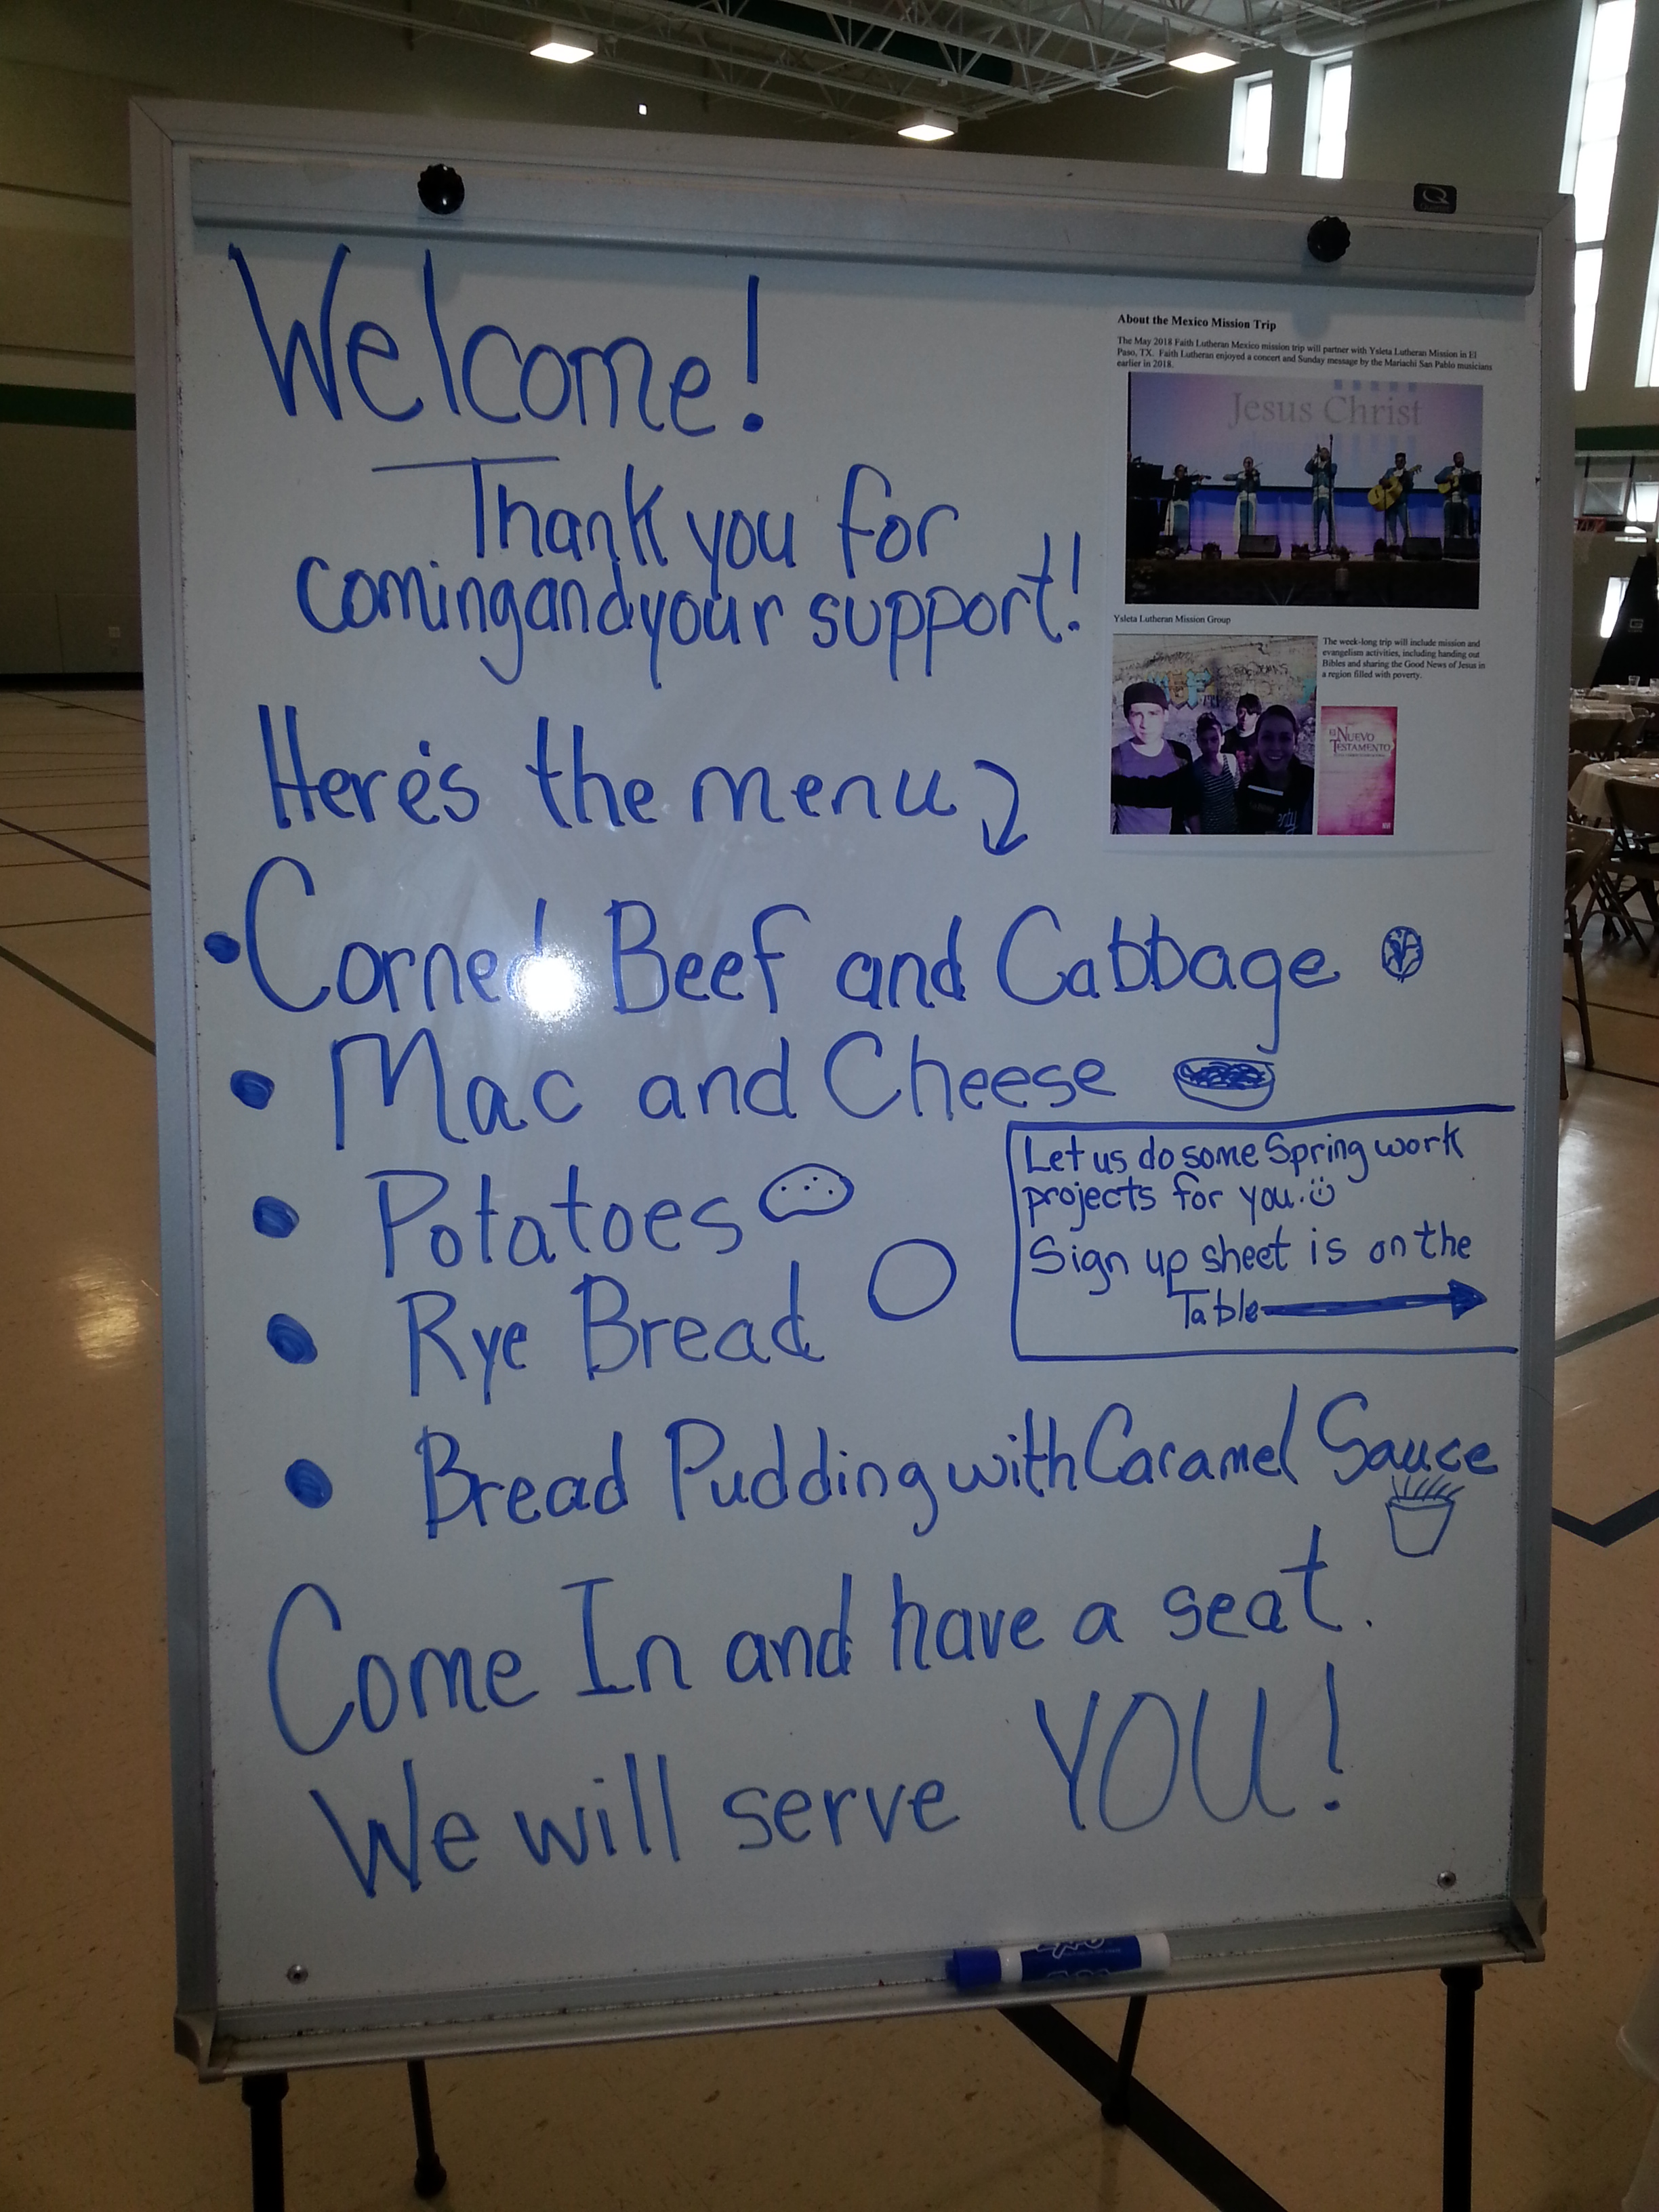 Welcome!
Thank you for
coming and your support!!
Here's the menu
• Corned Beef and Cabbage
• Mac and Cheese
• Potatoes
• Rye Bread
• Bread Pudding with Caramel Sauce
Come In and have a seat.
We will serve YOU!
Let us do some Spring work
projects for you.
Sign up sheet is on the
Table
About the Mexico Mission Trip
The May 2018 Faith Lutheran Mexico mission trip will partner with Ysleta Lutheran Mission in El
Paso, TX. Faith Lutheran enjoyed a concert and Sunday message by the Mariachi San Pablo musicians
earlier in 2018.
Jesus Christ
Ysleta Lutheran Mission Group
The week-long trip will include mission and
evangelism activities, including handing out
Bibles and sharing the Good News of Jesus in
a region filled with poverty.
EL NUEVO
TESTAMENTO
EXPO